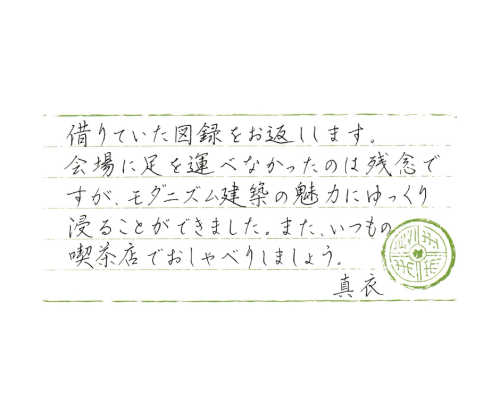 借りていた図録をお返しします。
会場に足を運べなかったのは残念で
すが、モダニズム建築の魅力にゆっくり
浸ることができました。また、いつもの
喫茶店でおしゃべりしましょう。
真衣